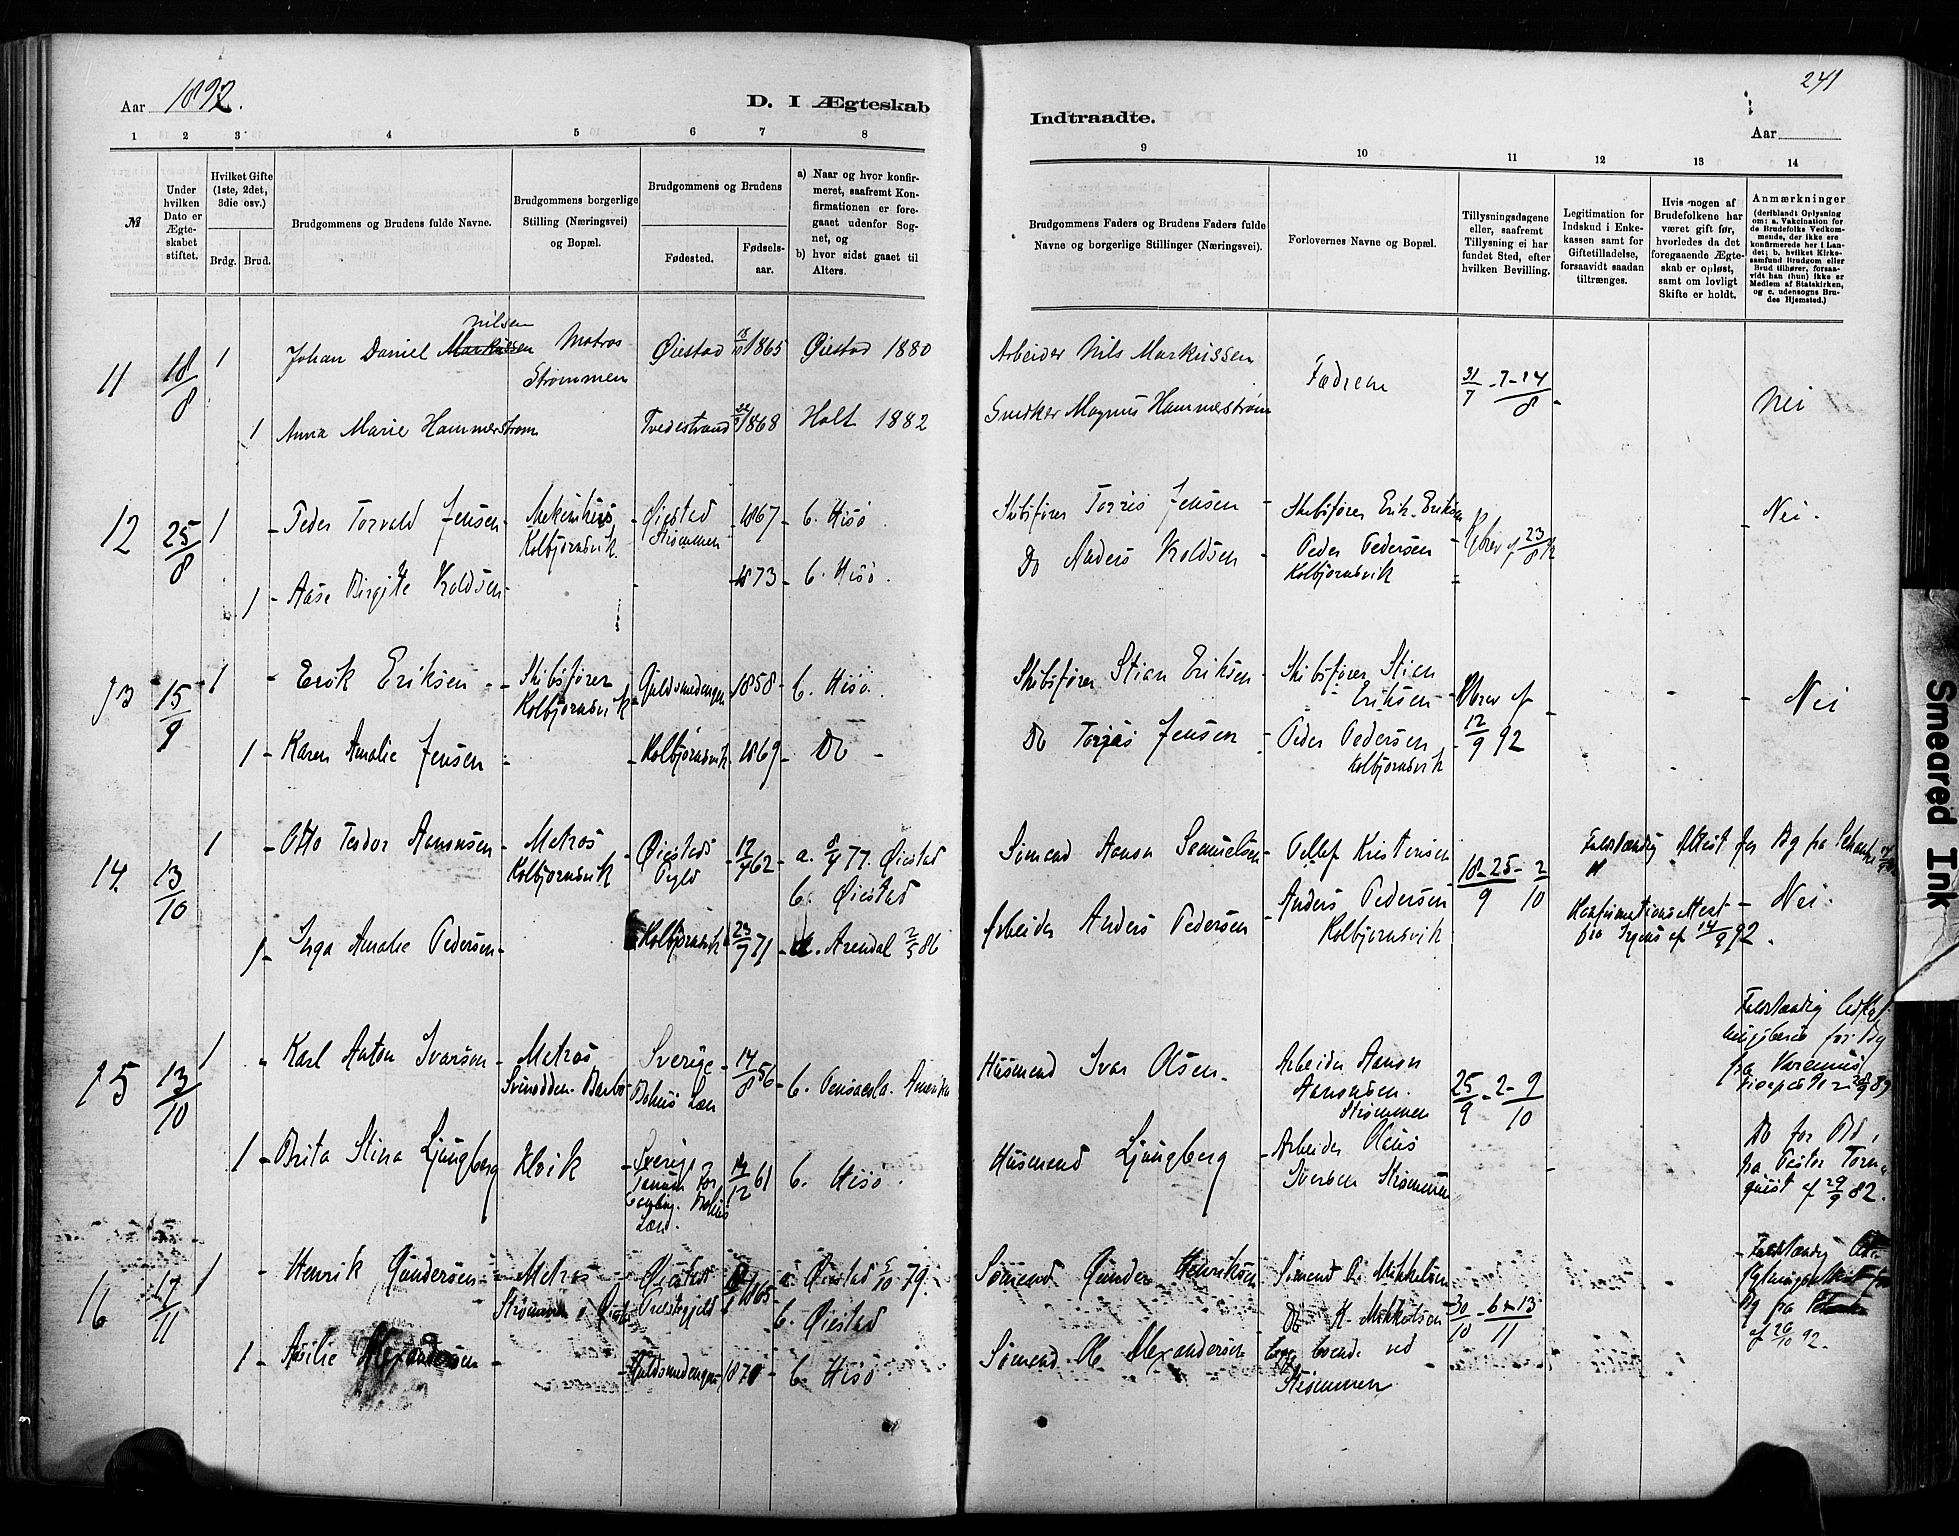 Aar 1892.
D. I Ægteskab
Indtraadte.
241
Aar
1 2 3 4 5 6 7 8
9 10 11 12 13 14
№
Under hvilken Dato er Ægteskabet stiftet.
Hvilket Gifte (1ste, 2det, 3die osv.)
Brdg. Brud.
Brudgommens og Brudens fulde Navne.
Brudgommens borgerlige Stilling (Næringsvei) og Bopæl.
Brudgommens og Brudens
Fødested.
Fødselsaar.
a) Naar og hvor konfirmeret, saafremt Konfirmationen er foregaaet udenfor Sognet, og
b) hvor sidst gaaet til Alters.
Brudgommens Faders og Brudens Faders fulde Navne og borgerlige Stillinger (Næringsvei).
Forlovernes Navne og Bopæl.
Tillysningsdagene eller, saafremt Tillysning ei har fundet Sted, efter hvilken Bevilling.
Legitimation for Indskud i Enkekassen samt for Giftetilladelse, forsaavidt saadan tiltrænges.
Hvis nogen af Brudefolkene har været gift før, hvorledes da det foregaaende Ægteskab er opløst, samt om lovligt Skifte er holdt.
Anmærkninger
(deriblandt Oplysning om: a. Vakcination for de Brudefolks Vedkommende, der ikke ere konfirmerede her i Landet; b. hvilket Kirkesamfund Brudgom eller Brud tilhører, forsaavidt han (hun) ikke er Medlem af Statskirken, og c. udensogns Brudes Hjemsted.)
11 18/8 1 Johan Daniel Markussen Nilsen Matros Strømmen Øiestad 1865 Øiestad 1880 Arbeider Nils Markussen Fædrene 31/7 - 7 - 14/8 - Nei
1 Anna Marie Hammerstrøm Tvedestrand 1868 Holt 1882 Snedker Magnus Hammerstrøm
12 25/8 1 - Peder Torvald Jensen - Kolbjørnsvik - Øiestad Strømmen - 1867 - b. Hisø Skibsfører Torjes Jensen - Skibsfører Erik Eriksen - Kbrev af 23/8 - Nei.
1 - Aase Birgitte Koldsen - 1873 - b. Hisø. Do Anders Koldsen - Peder Pedersen Kolbjørnsvik
13 15/9 1 - Erik Eriksen - Skibsfører Kolbjørnsvik - Guldsmedengen - 1858 - b. Hisø. Skibsfører Stian Eriksen - Skibsfører Stian Eriksen - Kbrev af 12/9 92 - Nei
1 - Karen Amalie Jensen - Kolbjørnsvik - 1869 - Do - Do Torjes Jensen - Peder Pedersen Kolbjørnsvik
14 13/10 1 - Otto Teodor Aanonsen - Matros Kolbjørnsvik - Øiestad - 62 - a. 8/4 77. Øiestad b. Øiestad Sømand Aanon Samuelsen - Tellef Kristensen 18 - 25 - 2 / 9 10 Fuldstændig Attest for Bg fra
1 - Inga Amalie Pedersen - Kolbjørnsvik - 23/7 71 - Arendal 2/5 86 Arbeider Anders Pedersen - Anders Pedersen Kolbjørnsvik Konfirmationsattest fra af 14/9 92. - Nei.
15 13/10 1 - Karl Anton Ivarson - Matros - Barbo - Sverige Bohus Læn 14/8 56 - b. Pensacola. Amerika Husmand Ivar Olsen. Arbeider Aanon Aanonsen. Strømmen 25/9 - 2 - 9/10 Fuldstændig for Bg fra
1 - Brita Stina Ljungberg Kolvik - Sverige Tanum Bohus Læn. 12 61 b. Hisø. Husmand Ljungberg - Arbeider Olaus Strømmen - Do for Bd, fra Pastor af 29/9 82.
16 17/11 1 - Henrik Gundersen - Matros Strømmen i Øiestad - Øiestad 1865 a. Øiestad 5/10 79. b. Øiestad Sømand Gunder Henriksen Sømand O. Mikkelsen 30/10 - 6 - 13/11 - Fuldstændig for Bg fra af 26/10 92.
1 - Alexandersen - Guldsmedengen - 1870 - b. Hisø. Sømand Ol. Alexandersen Do K. Mikkelsen begge boende ved Strømmen
Smeared Ink